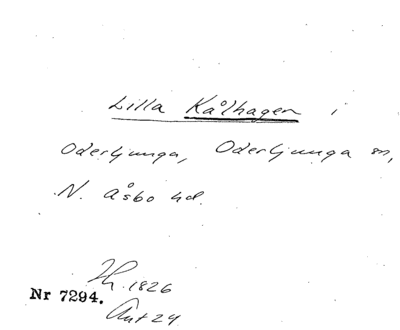 Lilla Kålhagen i
Oderljunga, Oderljunga sn,
N. Åsbo hd.
Lh. 1826
Nr 7294.
Ant 24